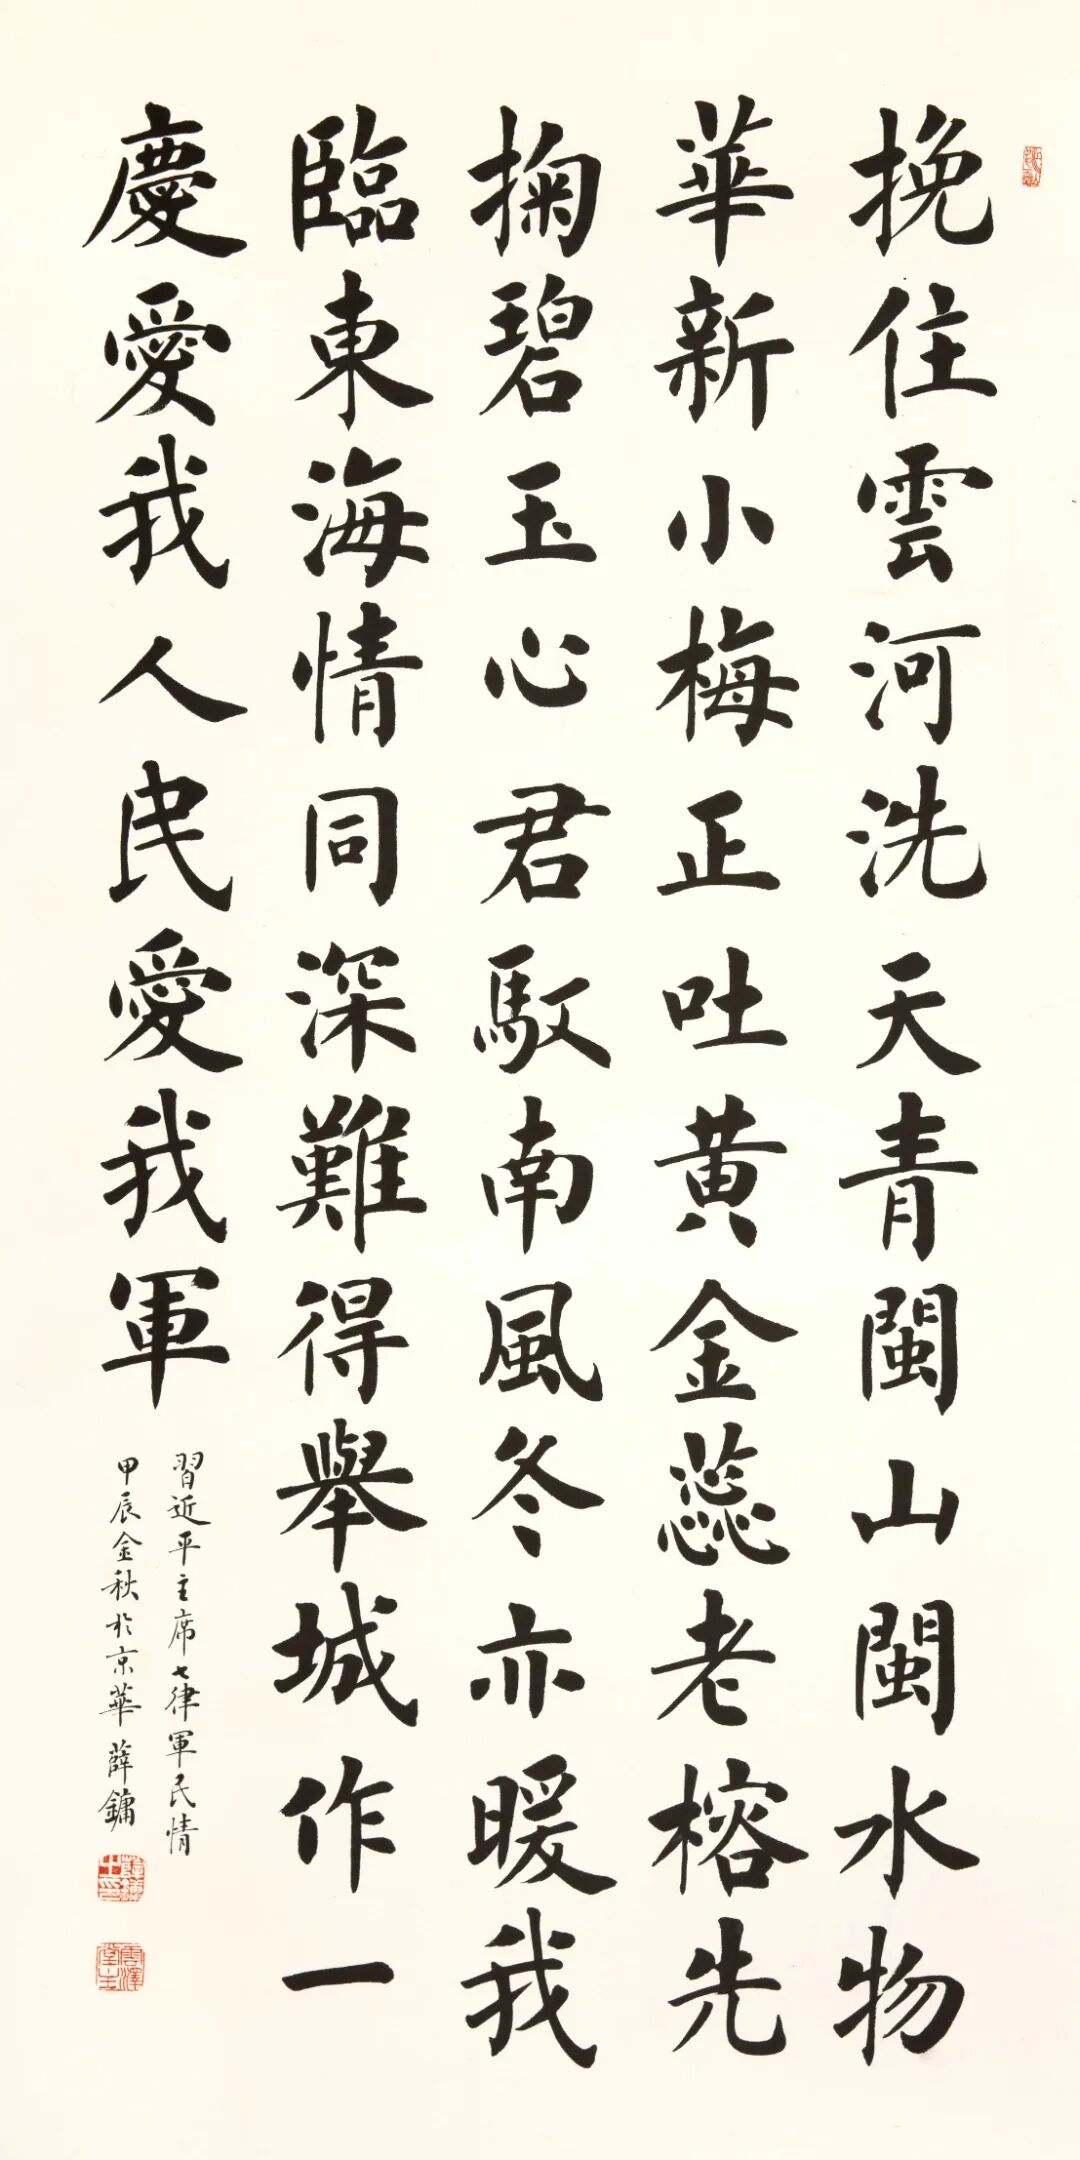 挽住雲河洗天青閩山閩水物
華新小梅正吐黄金蕊老榕先
掬碧玉心君馭南風冬亦暖我
臨東海情同深難得舉城作一
慶愛我人民愛我軍
習近平主席七律軍民情
甲辰金秋於京華薛鏞